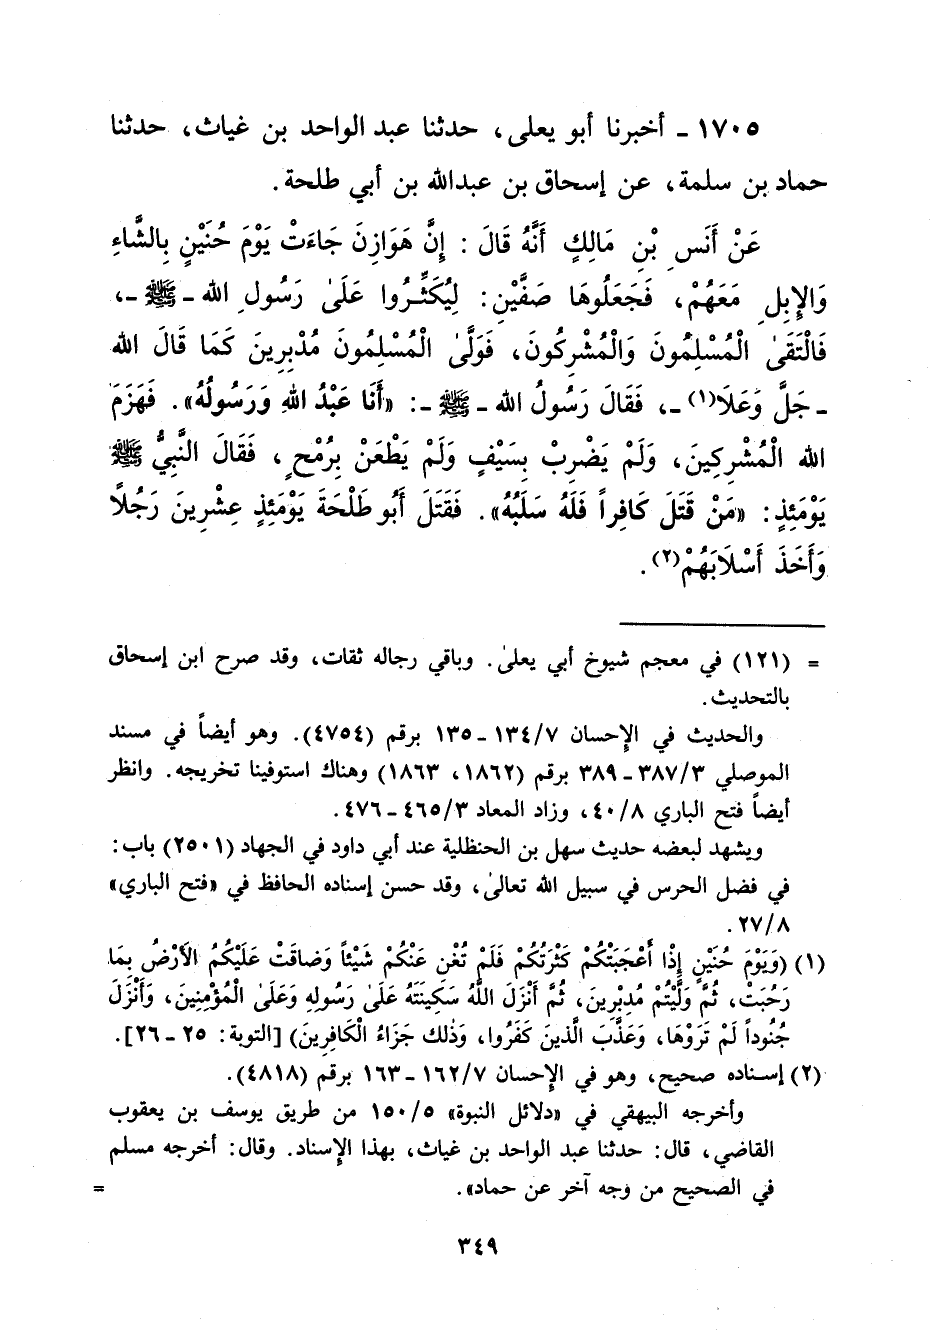 ١٧٠٥ - أخبرنا أبو يعلى، حدثنا عبد الواحد بن غياث، حدثنا
حماد بن سلمة، عن إسحاق بن عبدالله بن أبي طلحة.
عَنْ أَنَسِ بْنِ مَالِكٍ أَنَّهُ قَالَ : إِنَّ هَوَازِنَ جَاءَتْ يَوْمَ حُنَيْنٍ بِالشَّاءِ
وَالإِبِلِ مَعَهُمْ، فَجَعَلُوهَا صَفَّيْنِ: لِيُكَثِّرُوا عَلَىٰ رَسُولِ الله - ﷺ -،
فَالْتَقَىٰ الْمُسْلِمُونَ وَالْمُشْرِكُونَ، فَوَلَّىٰ الْمُسْلِمُونَ مُدْبِرِينَ كَمَا قَالَ الله
- جَلَّ وَعَلَا(١) -، فَقَالَ رَسُولُ الله - ﷺ -: «أَنَا عَبْدُ اللهِ وَرَسُولُهُ». فَهَزَمَ
الله الْمُشْرِكِينَ، وَلَمْ يَضْرِبْ بِسَيْفٍ وَلَمْ يَطْعَنْ بِرُمْحٍ، فَقَالَ النَّبِيُّ ﷺ
يَوْمَئِذٍ: «مَنْ قَتَلَ كَافِراً فَلَهُ سَلَبُهُ». فَقَتَلَ أَبُو طَلْحَةَ يَوْمَئِذٍ عِشْرِينَ رَجُلاً
وَأَخَذَ أَسْلَابَهُمْ(٢).
= (١٢١) في معجم شيوخ أبي يعلىٰ. وباقي رجاله ثقات، وقد صرح ابن إسحاق
بالتحديث.
والحديث في الإحسان ١٣٤/٧ - ١٣٥ برقم (٤٧٥٤). وهو أيضاً في مسند
الموصلي ٣٨٧/٣ - ٣٨٩ برقم (١٨٦٢، ١٨٦٣) وهناك استوفينا تخريجه. وانظر
أيضاً فتح الباري ٤٠/٨، وزاد المعاد ٤٦٥/٣ - ٤٧٦.
ويشهد لبعضه حديث سهل بن الحنظلية عند أبي داود في الجهاد (٢٥٠١) باب:
في فضل الحرس في سبيل الله تعالىٰ، وقد حسن إسناده الحافظ في «فتح الباري»
٢٧/٨.
(١) (وَيَوْمَ حُنَيْنٍ إِذْا أَعْجَبَتْكُمْ كَثْرَتُكُمْ فَلَمْ تُغْنِ عَنْكُمْ شَيْئاً وَضاقَتْ عَلَيْكُمُ الأَرْضُ بِمَا
رَحُبَتْ، ثُمَّ وَلَّيْتُمْ مُدْبِرِينَ، ثُمَّ أَنْزَلَ اللَّهُ سَكِينَتَهُ عَلَىٰ رَسُولِهِ وَعَلَىٰ الْمُؤْمِنِينَ، وَأَنْزَلَ
جُنُوداً لَمْ تَرَوْهَا، وَعَذَّبَ الَّذينَ كَفَرُوا، وَذٰلك جَزَاءُ الْكَافِرِينَ) [التوبة: ٢٥ - ٢٦].
(٢) إسناده صحيح، وهو في الإحسان ١٦٢/٧ - ١٦٣ برقم (٤٨١٨).
وأخرجه البيهقي في «دلائل النبوة» ١٥٠/٥ من طريق يوسف بن يعقوب
القاضي، قال: حدثنا عبد الواحد بن غياث، بهذا الإسناد. وقال: أخرجه مسلم
في الصحيح من وجه آخر عن حماد». =
٣٤٩